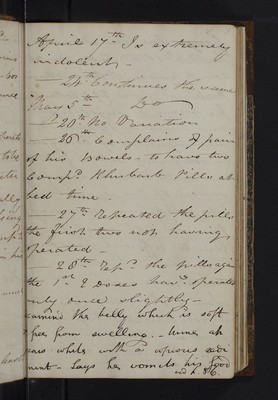 April 17th Is extremely
indolent -
— 24th Continues the same
May 5th Do
— 20th No Variation
— 26th Complains of pain
of his Bowels - to have two
Compd Rhubarb Pills at
bed time.
— 27th Repeated the pills
the first two not having
operated
— 28th Repd the pills again
the 1st 2 Doses havg operated
only once slightly -
examind the belly which is soft
& free from swelling. - Urine ap
pears white with a copious sedi
ment - Says he vomits his food